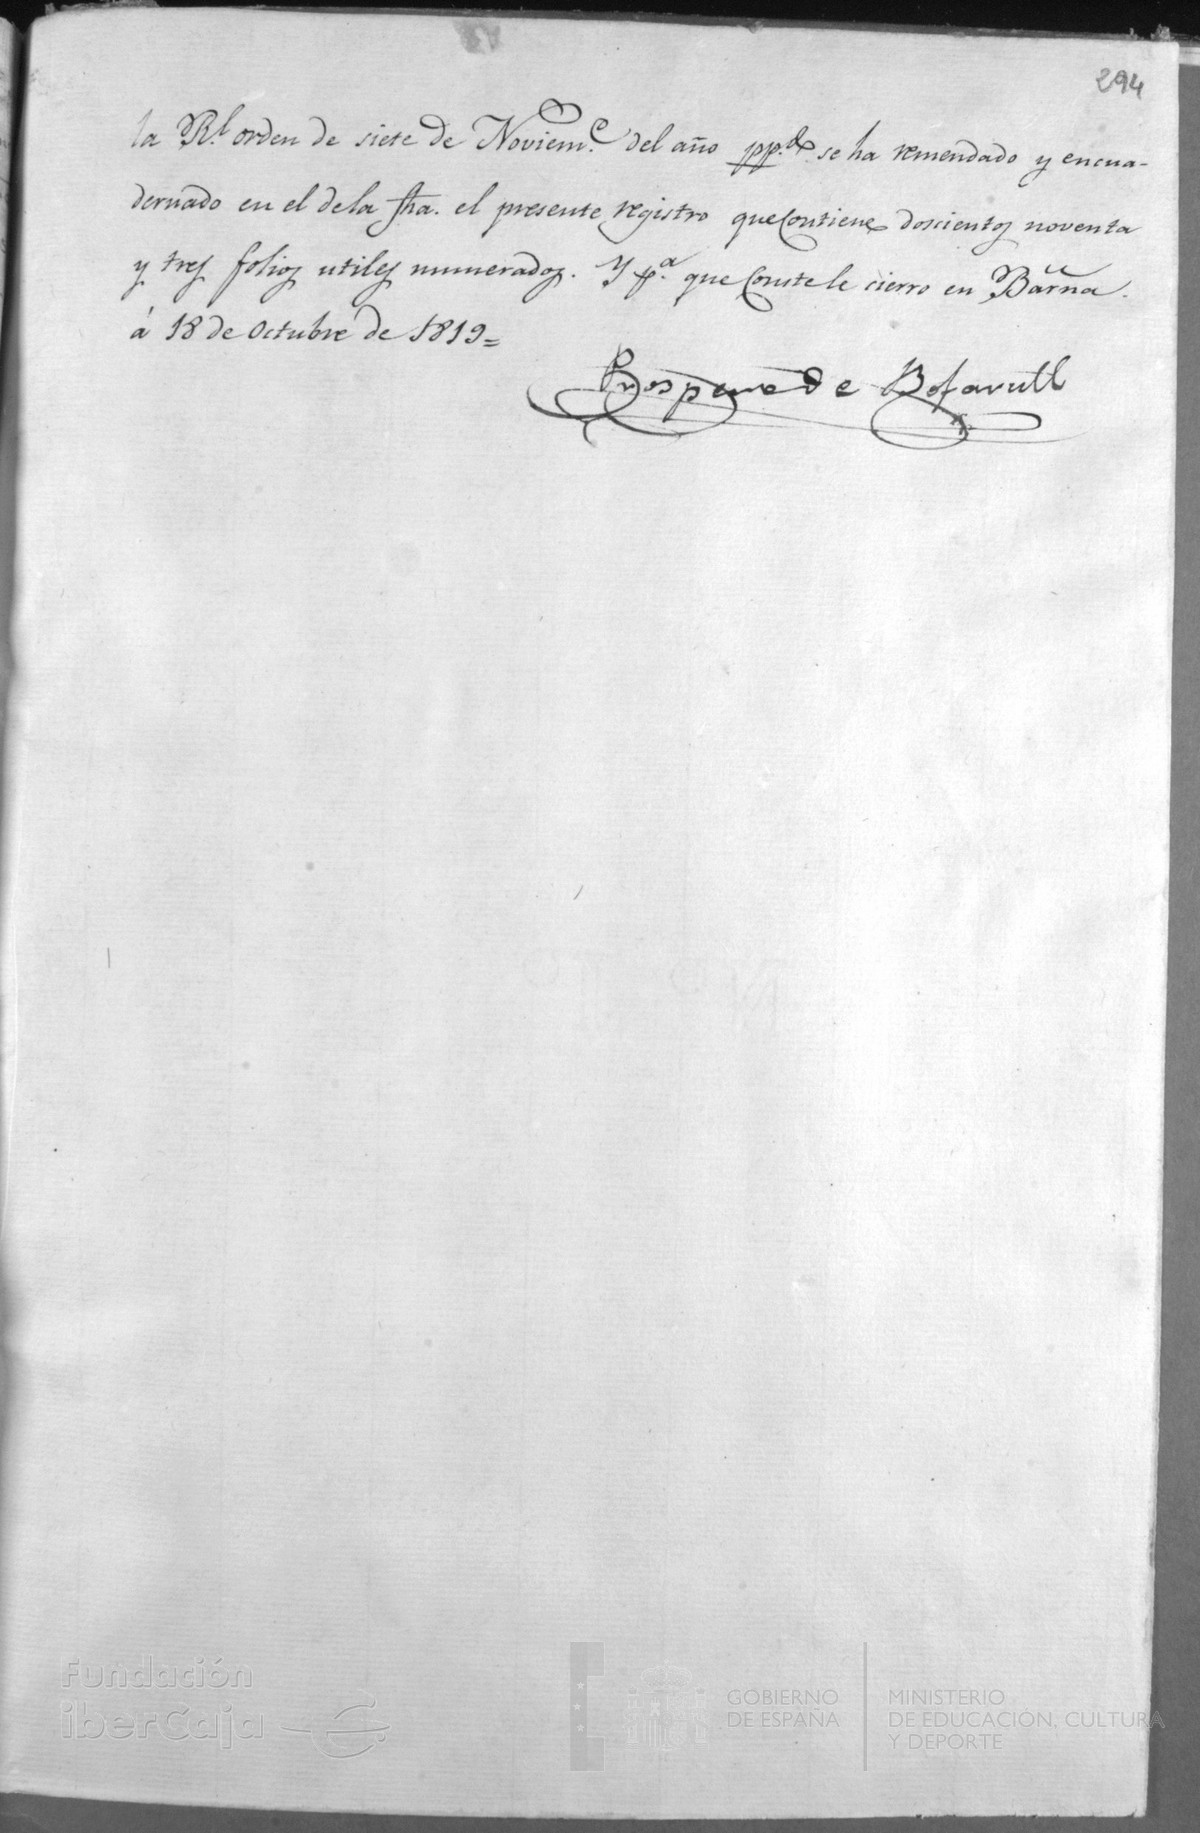 294
la Rl. orden de siete de Novieme. del año pp.do se ha remendado y encua-
dernado en el de la fha. el presente registro que contiene doscientos noventa
y tres folios utiles numerados. Y pa. que conste le cierro en Barna.
á 18 de Octubre de 1819=
Prospero de Bofarull
Fundación
iberCaja
GOBIERNO
DE ESPAÑA
MINISTERIO
DE EDUCACIÓN, CULTURA
Y DEPORTE